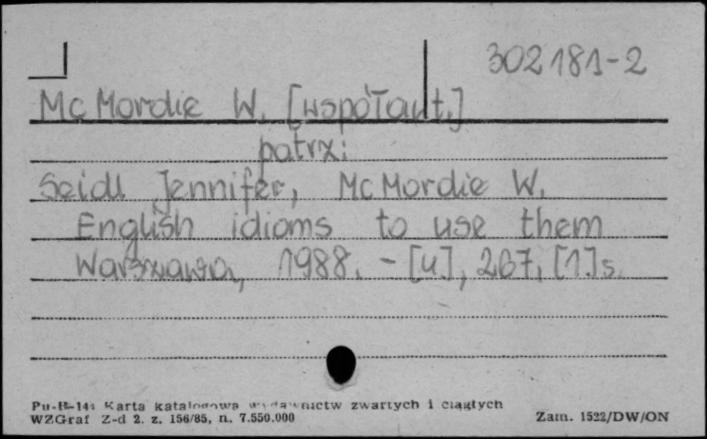 302181-2
McMordie W. [współaut.]
patrz:
Seidl Jennifer, McMordie W.
English idioms to use them
Warszawa, 1988. - [4], 267, [1] s.
Pu-B-141 Karta katalogowa wydawnictw zwartych i ciągłych
WZGraf Z-d 2. z. 156/85, n. 7.550.000 Zam. 1522/DW/ON